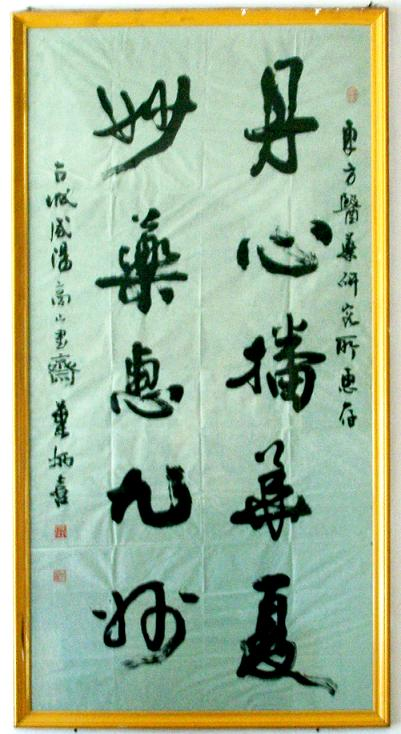 東方醫藥研究所惠存
丹心播華夏
妙藥惠九州
古城咸陽高山書齋 葉炳喜